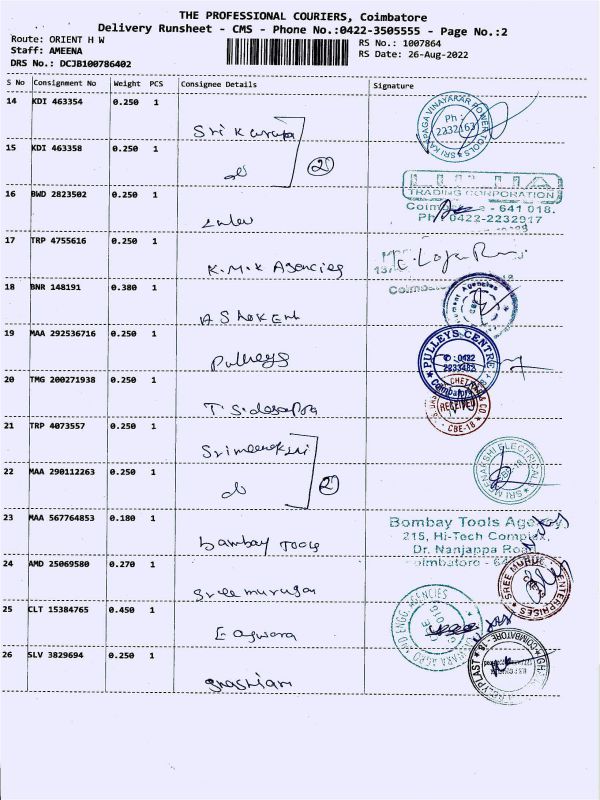 THE PROFESSIONAL COURIERS, Coimbatore
Delivery Runsheet - CMS - Phone No.:0422-3505555 - Page No.:2
Route: ORIENT H W
RS No.: 1007864
Staff: AMEENA
RS Date: 26-Aug-2022
DRS No.: DCJB100786402
S No Consignment No Weight PCS Consignee Details Signature
14 KDI 463354 0.250 1
Ph :
2232163
SRI KARPAGA VINAYAKAR POWER TOOLS
15 KDI 463358 0.250 1
do
2
TRADING CORPORATION
Coimbatore - 641 018.
Ph : 0422-2232917
16 BWD 2823502 0.250 1
17 TRP 4755616 0.250 1
K.M.K Agencies
18 BNR 148191 0.380 1
Coimbat
Agencies
Ashok Ent
19 MAA 292536716 0.250 1
Pulleys
PULLEYS CENTRE
: 0422
2233482
Coimbatore - 18
20 TMG 200271938 0.250 1
RECEIVED
& CO
CBE-18
21 TRP 4073557 0.250 1
SRI MEENAKSHI ELECTRICALS
22 MAA 290112263 0.250 1
do
2
23 MAA 567764853 0.180 1
bombay Tools
Bombay Tools Agency,
215, Hi-Tech Complex,
Dr. Nanjappa Road
24 AMD 25069580 0.270 1
Sree murugan
SREE MURUG ENTERPRISES
25 CLT 15384765 0.450 1
AGRO AND ENGG. AGENCIES
26 SLV 3829694 0.250 1
COIMBATORE - 18